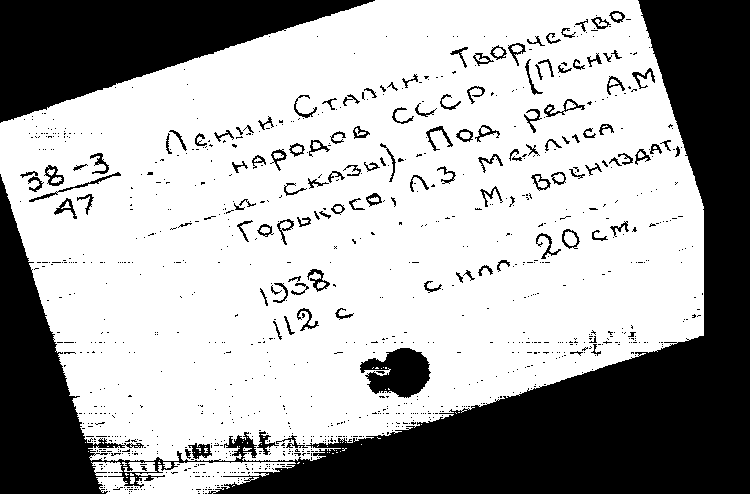 38-3
47
Ленин. Сталин. Творчество
народов СССР. (Песни
и сказы). Под ред. А.М
Горького, Л.З Мехлиса
М, Воениздат,
1938.
112 с с илл. 20 см.